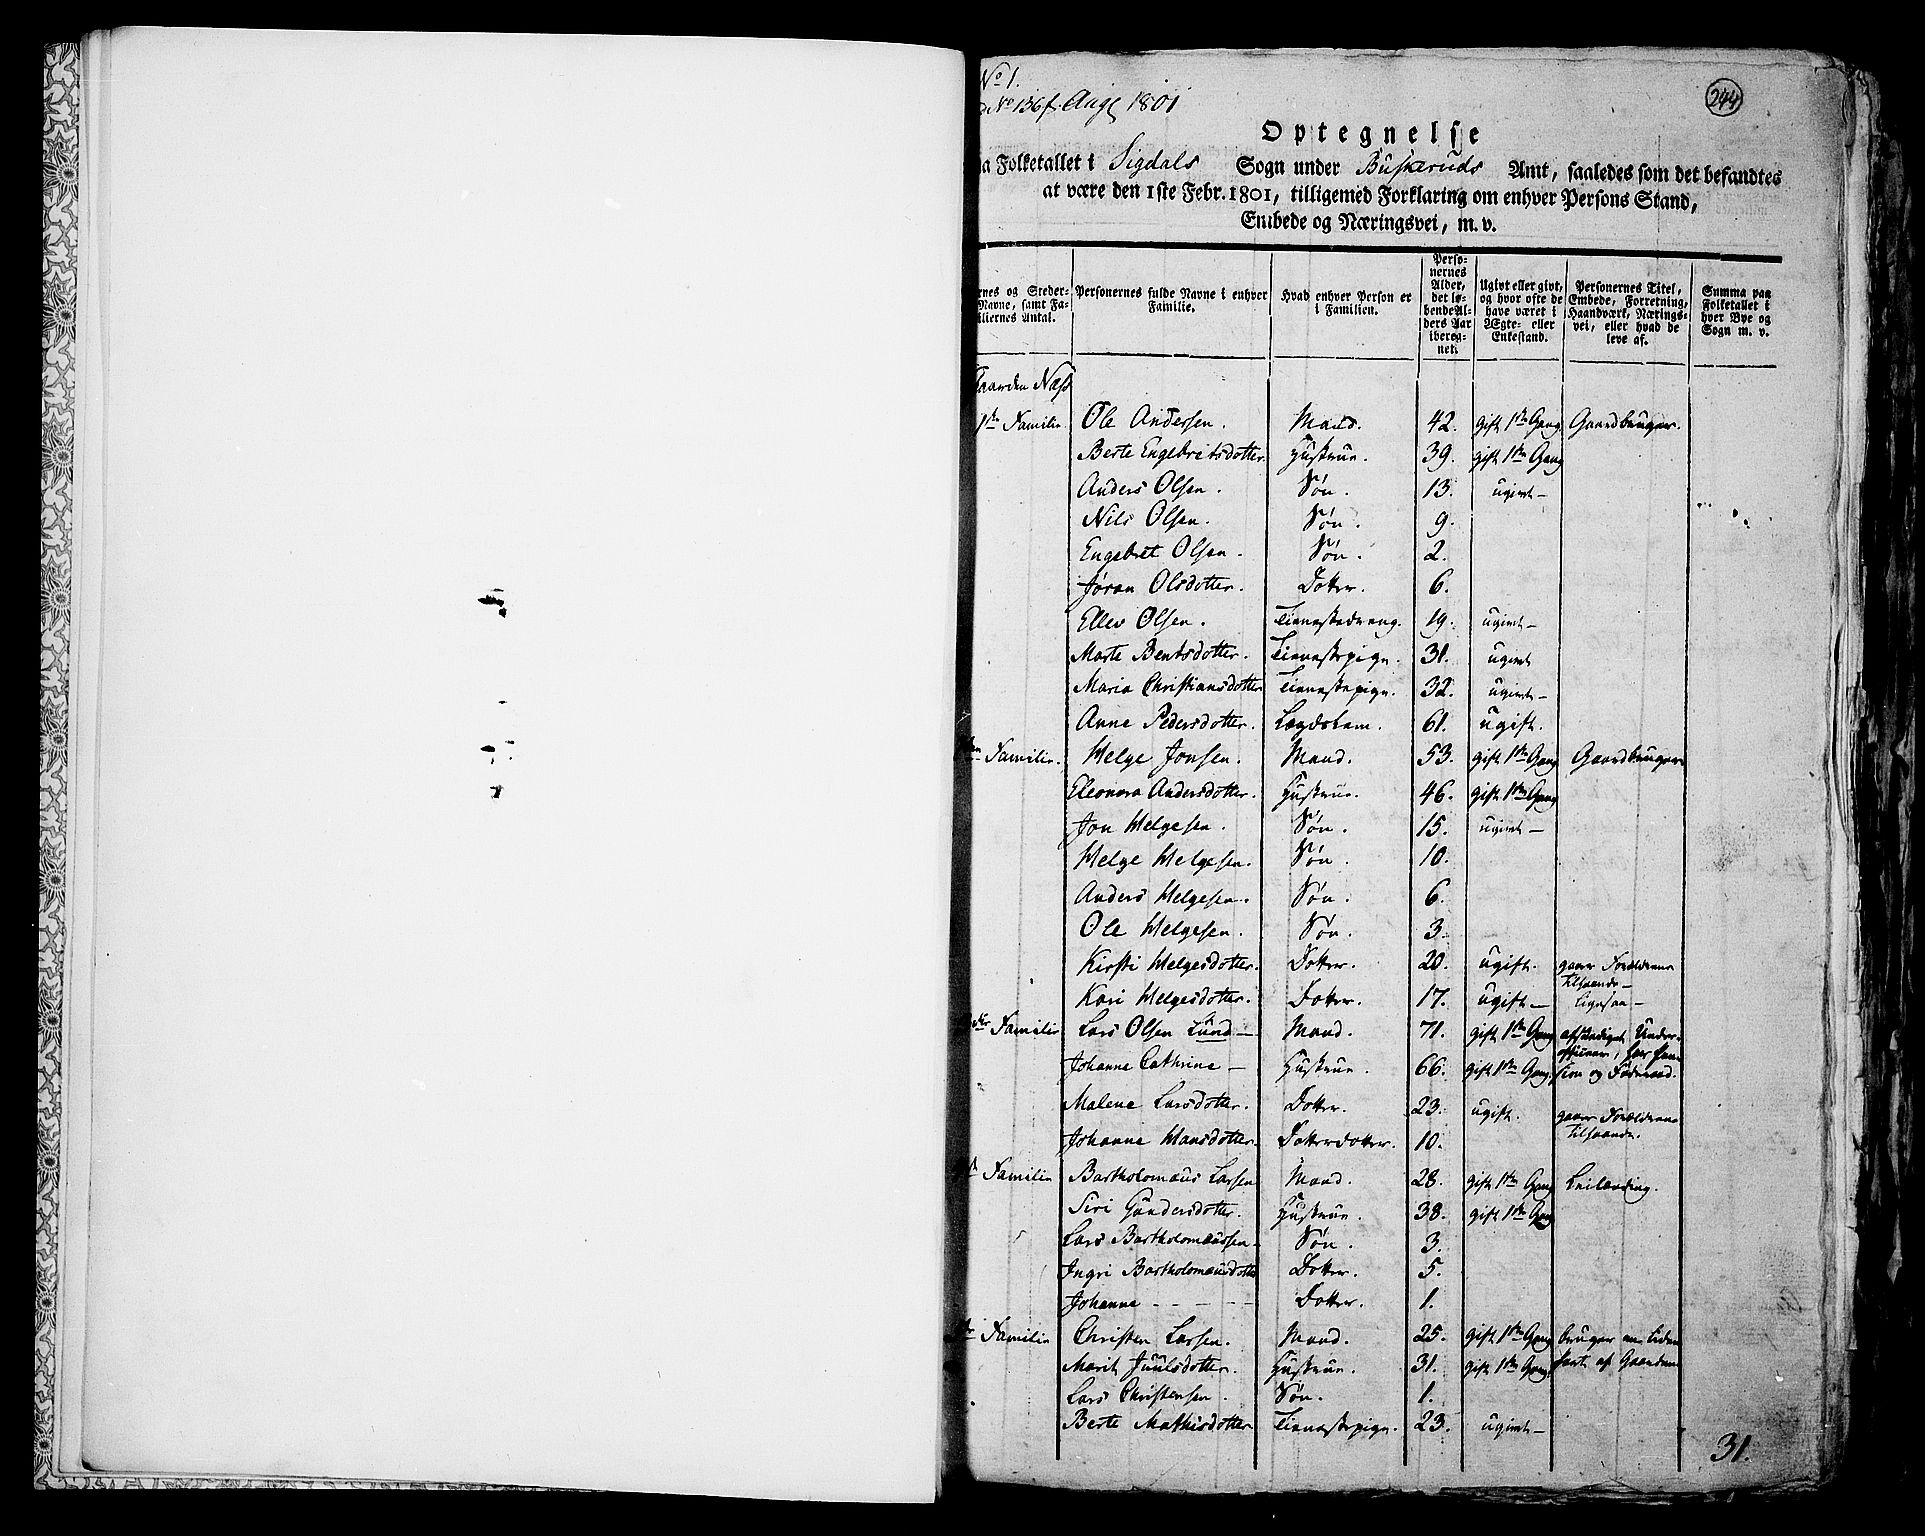 No 1.
No 136 f. Aug 1801
244
Optegnelse
Folketallet i Sigdals Sogn under Buskeruds Amt, saaledes som det befandtes
at være den 1ste Febr. 1801, tilligemed Forklaring om enhver Persons Stand,
Embede og Næringsvei, m. v.
og Steder- Navne, samt Familiernes Antal.
Personernes fulde Navne i enhver Familie.
Hvad enhver Person er i Familien.
Personernes Alder, det løbende Alders Aar iberegnet.
Ugivt eller givt, og hvor ofte de have været i Ægte- eller Enkestand.
Personernes Titel, Embede, Forretning, Haandværk, Næringsvei, eller hvad de leve af.
Summa paa Folketallet i hver Bye og Sogn m. v.
Gaarden Næss
1te Familie. Ole Andersen. Mand. 42. gift 1te Gang Gaardbruger.
Berte Engebretsdotter. Hustrue. 39. gift 1te Gang
Anders Olsen. Søn. 13. ugivt –
Nils Olsen. Søn. 9.
Engebret Olsen. Søn. 2.
Jøran Olsdotter. Dotter. 6.
Ellev Olsen. Tienestedreng. 19. ugivt –
Marte Bentsdotter. Tienestepige. 31. ugivt
Maria Christiansdotter Tienestepige. 32. ugivt –
Anne Pedersdotter. Lægdslem. 61. ugift.
Familie. Helge Jonsen. Mand. 53. gift 1te Gang Gaardbruger
Eleonora Andersdotter. Hustrue. 46. gift 1te Gang
Jon Helgesen. Søn. 15. ugivt –
Helge Helgesen. Søn. 10.
Anders Helgesen. Søn. 6.
Ole Helgesen. Søn. 3.
Kirsti Helgesdotter. Dotter. 20. ugift. gaaer Forældrene tilhaande –
Kari Helgesdotter. Dotter. 17. ugift – ligesaa –
Familie Lars Olsen Lund – Mand. 71. gift 1te Gang afskediget Under-
Johanne Cathrine – Hustrue. 66. gift 1te Gang, og Føderaad.
Malene Larsdotter. Dotter. 23. ugift. gaaer Forældrene tilhaande.
Johanne Hansdotter. Dotterdotter. 10.
Familie Bartholomæus Larsen Mand. 28. gift 1te Gang Leilænding.
Siri Gundersdotter. Hustrue. 38. gift 1te Gang
Lars Bartholomæussen – Søn. 3.
Ingri Bartholomæusdotter Dotter. 5.
Johanne – – – – Dotter. 1.
Familie Christen Larsen. Mand. 25. gift 1te Gang bruger en liden
Marit Juulsdotter. Hustrue. 31. gift 1te Gang. Part af Gaarden
Lars Christensen. Søn. 1.
Berte Mathisdotter Tienestepige. 23. ugivt –
31.